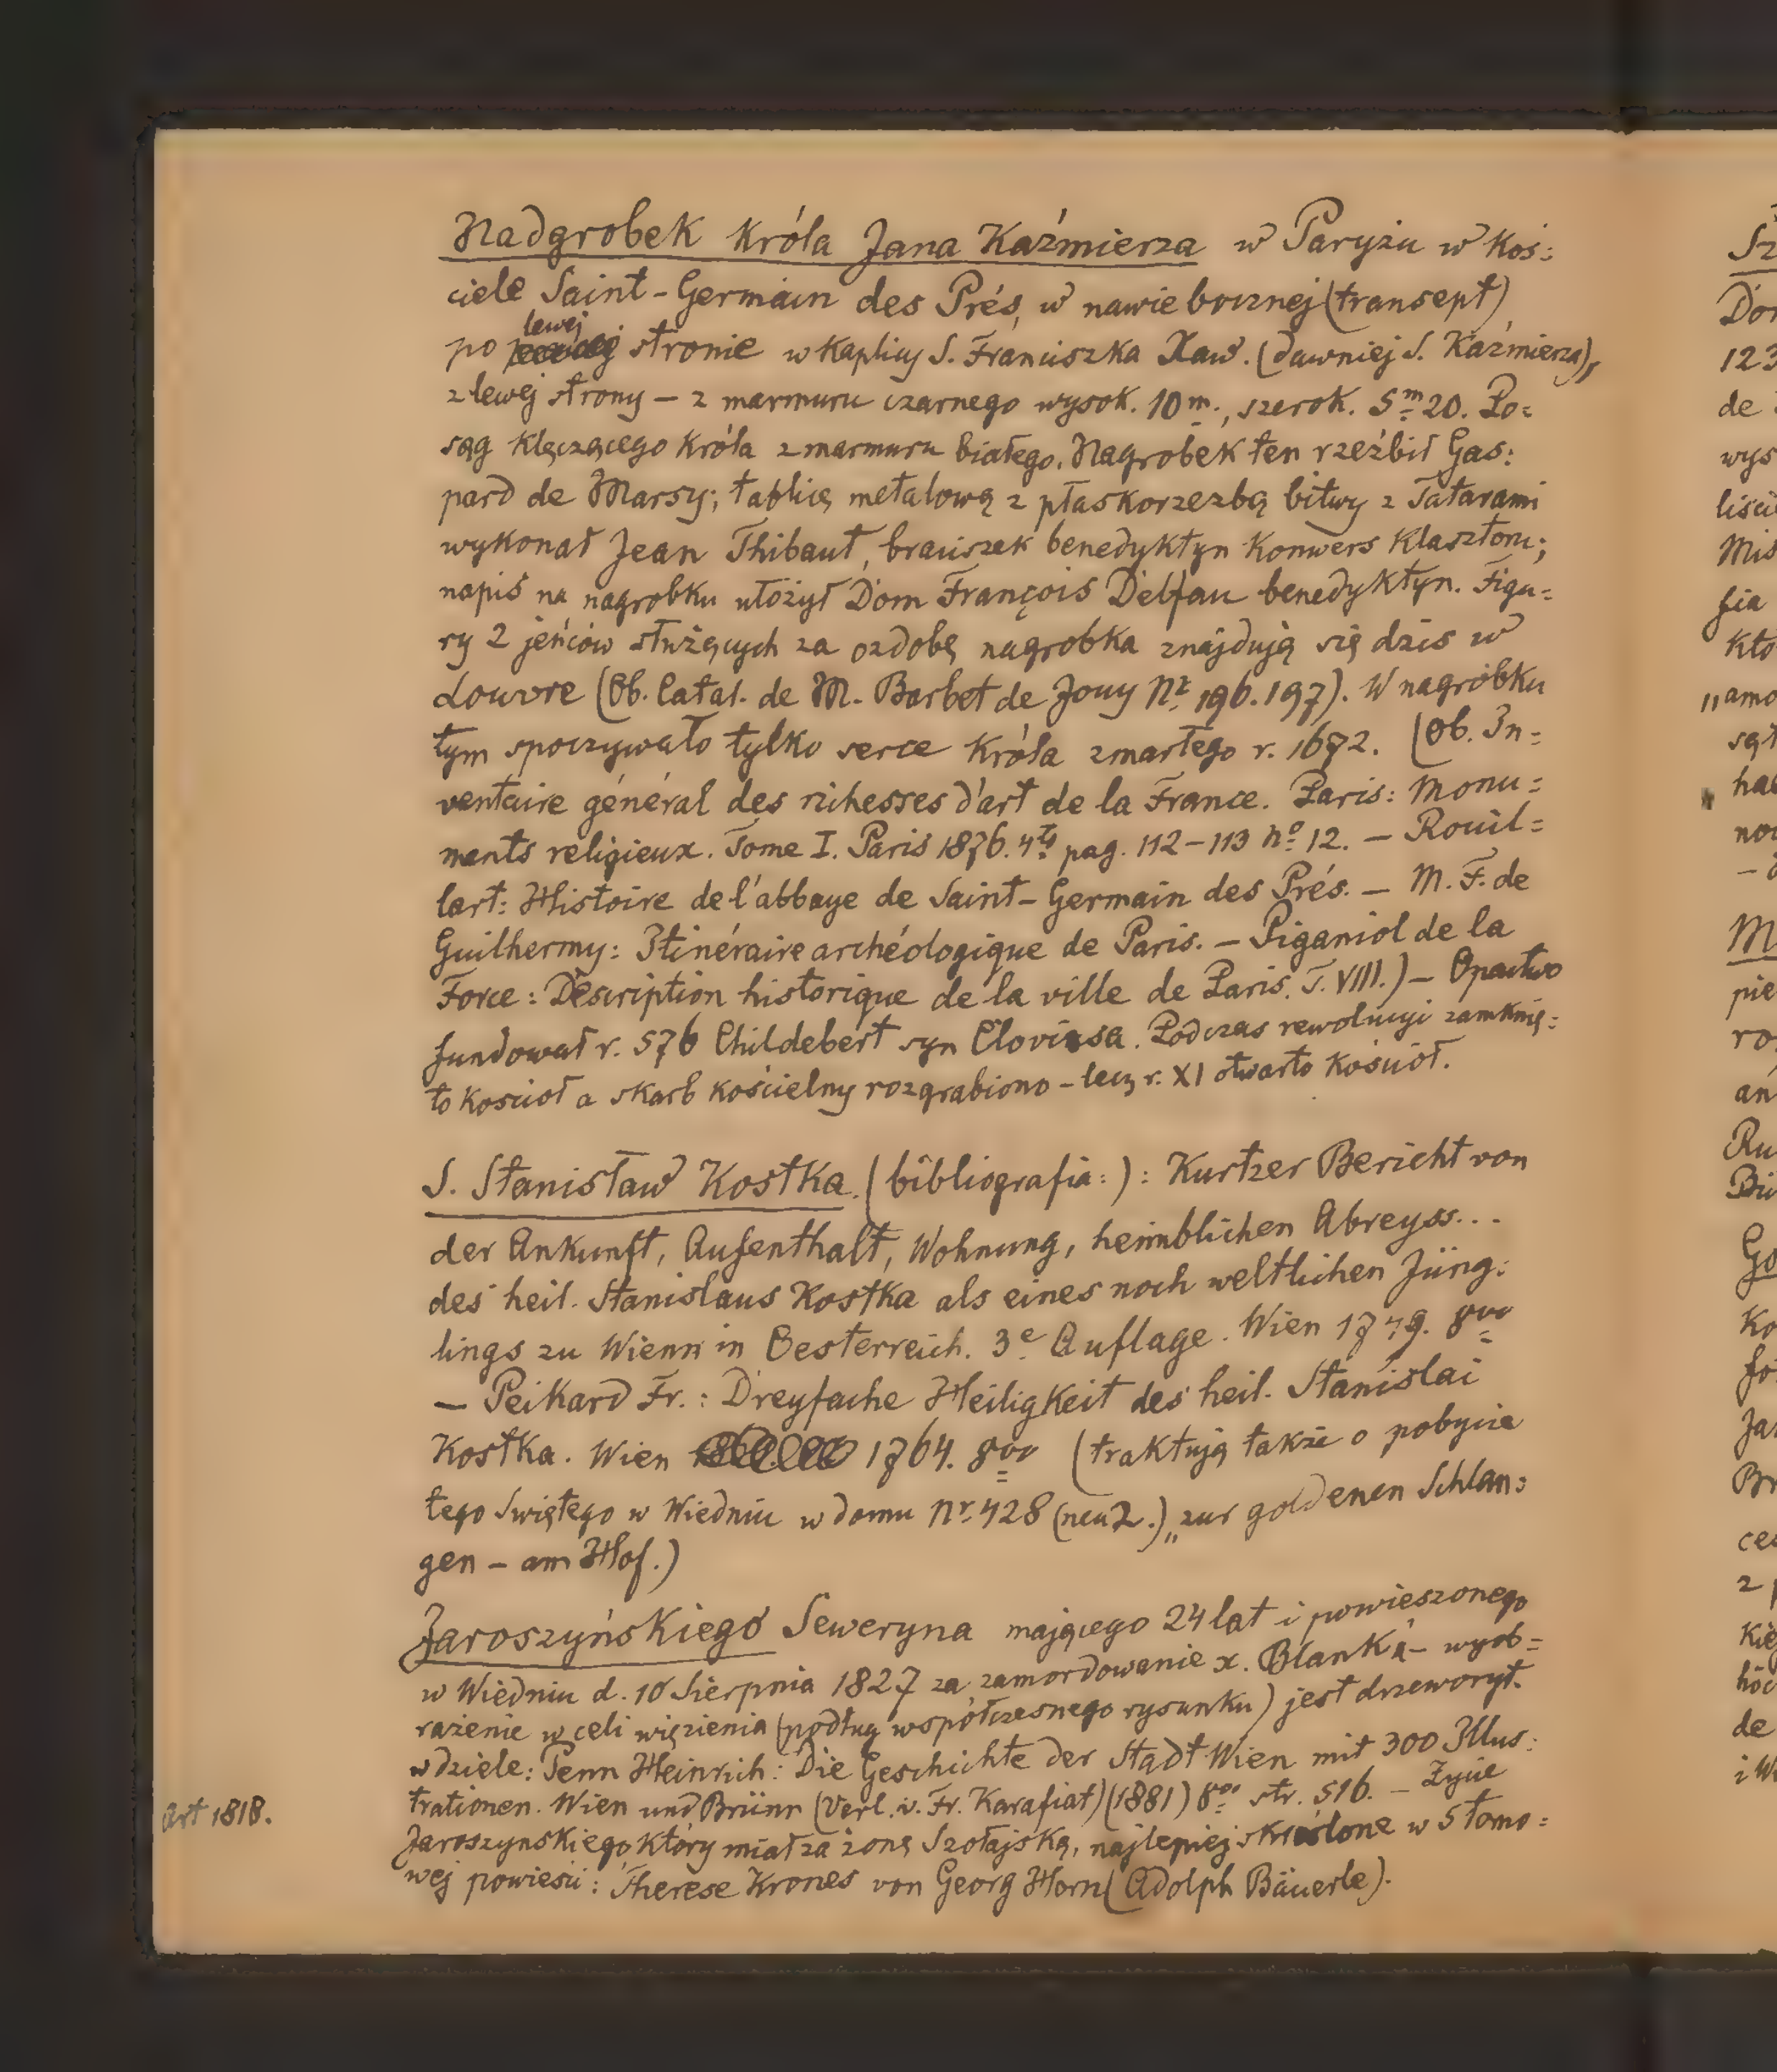 Nadgrobek Króla Jana Kaźmierza w Paryżu w Koś=
ciele Saint-Germain des Prés, w nawie bocznej (transept)
po lewej stronie w Kaplicy S. Franciszka Xaw. (dawniej S. Kaźmierza),
z lewej strony – z marmuru czarnego wysok. 10 m., szerok. 5m20. Po=
sąg Klęczącego Króla z marmuru białego. Nagrobek ten rzeźbił Gas=
pard de Marsy; tablicę metalową z płaskorzezbą bitwy z Tatarami
wykonał Jean Thibaut, braciszek benedyktyn Konwers Klasztoru;
napis na nagrobku ułożył Dom François Delfau benedyktyn. Figu=
ry 2 jeńców służących za ozdobę nagrobka znajdują się dzis w
Louvre (Ob. Catal. de M. Barbet de Jouy Nr. 196. 197). W nagrobku
tym spoczywało tylko serce Króla zmarłego r. 1672. (Ob. In=
ventaire général des richesses d'art de la France. Paris: Monu=
ments religieux. Tome I. Paris 1876. 4to pag. 112–113 No 12. – Rouil=
lart: Histoire de l'abbaye de Saint-Germain des Prés. – M. F. de
Guilhermy: Itinéraire archéologique de Paris. – Piganiol de la
Force: Description historique de la ville de Paris. T. VIII.) – Opactwo
fundował r. 576 Childebert syn Clovisa. Podczas rewolucyi zamknię=
to Kościoł a skarb kościelny rozgrabiono – lecz r. XI otwarto Kościoł.
S. Stanisław Kostka. (bibliografia:): Kurtzer Bericht von
der Ankunft, Aufenthalt, Wohnung, heimblichen Abreyss...
des heil. Stanislaus Kostka als eines noch weltlichen Jüng=
lings zu Wienn in Oesterreich. 3e Auflage. Wien 1749. 8vo
– Peikard Fr.: Dreyfache Heiligkeit des heil. Stanislai
Kostka. Wien 1764. 8vo (traktują także o pobycie
tego Swiętego w Wiedniu w domu Nr. 428 (neu 2.) „zur goldenen Schlan=
gen – am Hof.)
Jaroszyńskiego Seweryna mającego 24 lat i powieszonego
w Wiedniu d. 10 Sierpnia 1827 za zamordowanie x. Blank'a – wyob=
rażenie w celi więzienia (podług współczesnego rysunku) jest drzeworyt.
w dziele: Penn Heinrich: Die Geschichte der Stadt Wien mit 300 Illus=
trationen. Wien und Brünn (Verl. v. Fr. Karafiat) (1881) 8vo str. 516. – Życie
Art 1818.
Jaroszynskiego, który miał za żonę Szołajską, najlepiej skreślone w 5 tomo=
wej powieści: Therese Krones von Georg Horn (Adolph Bäuerle).